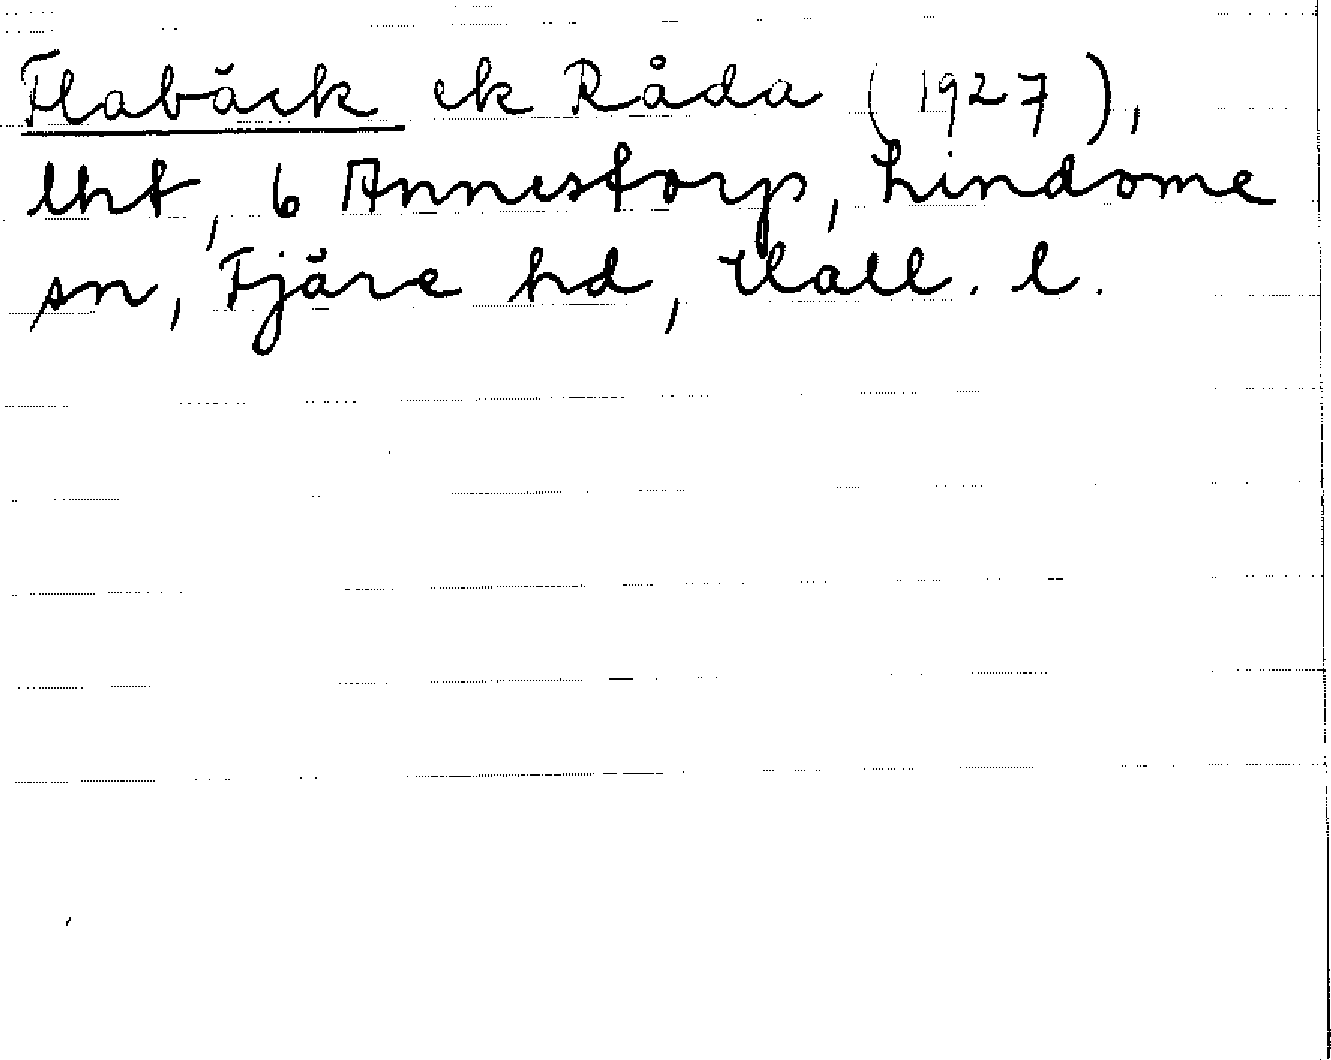 Flabäck ek Råda (1927),
lht, 6 Annestorp, Lindome
sn, Fjäre hd, Hall. l.